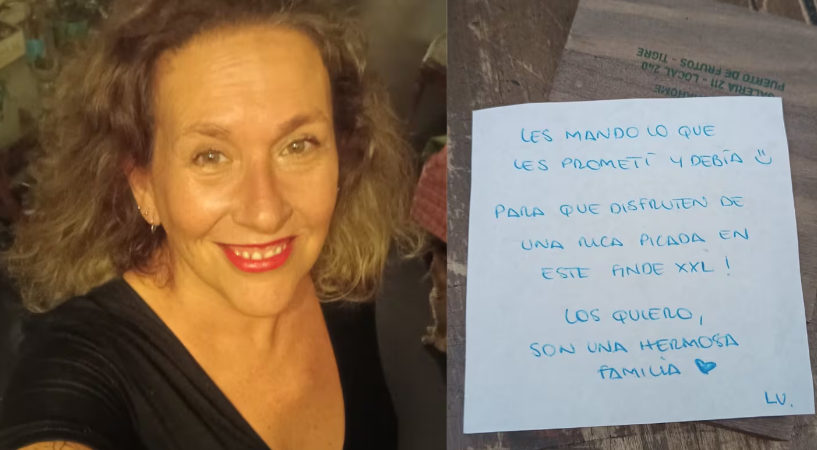 GALERIA 211 - LOCAL 240
PUERTO DE FRUTOS - TIGRE
LES MANDO LO QUE
LES PROMETÍ Y DEBÍA
PARA QUE DISFRUTEN DE
UNA RICA PICADA EN
ESTE FINDE XXL !
LOS QUIERO,
SON UNA HERMOSA
FAMILIA
LU.